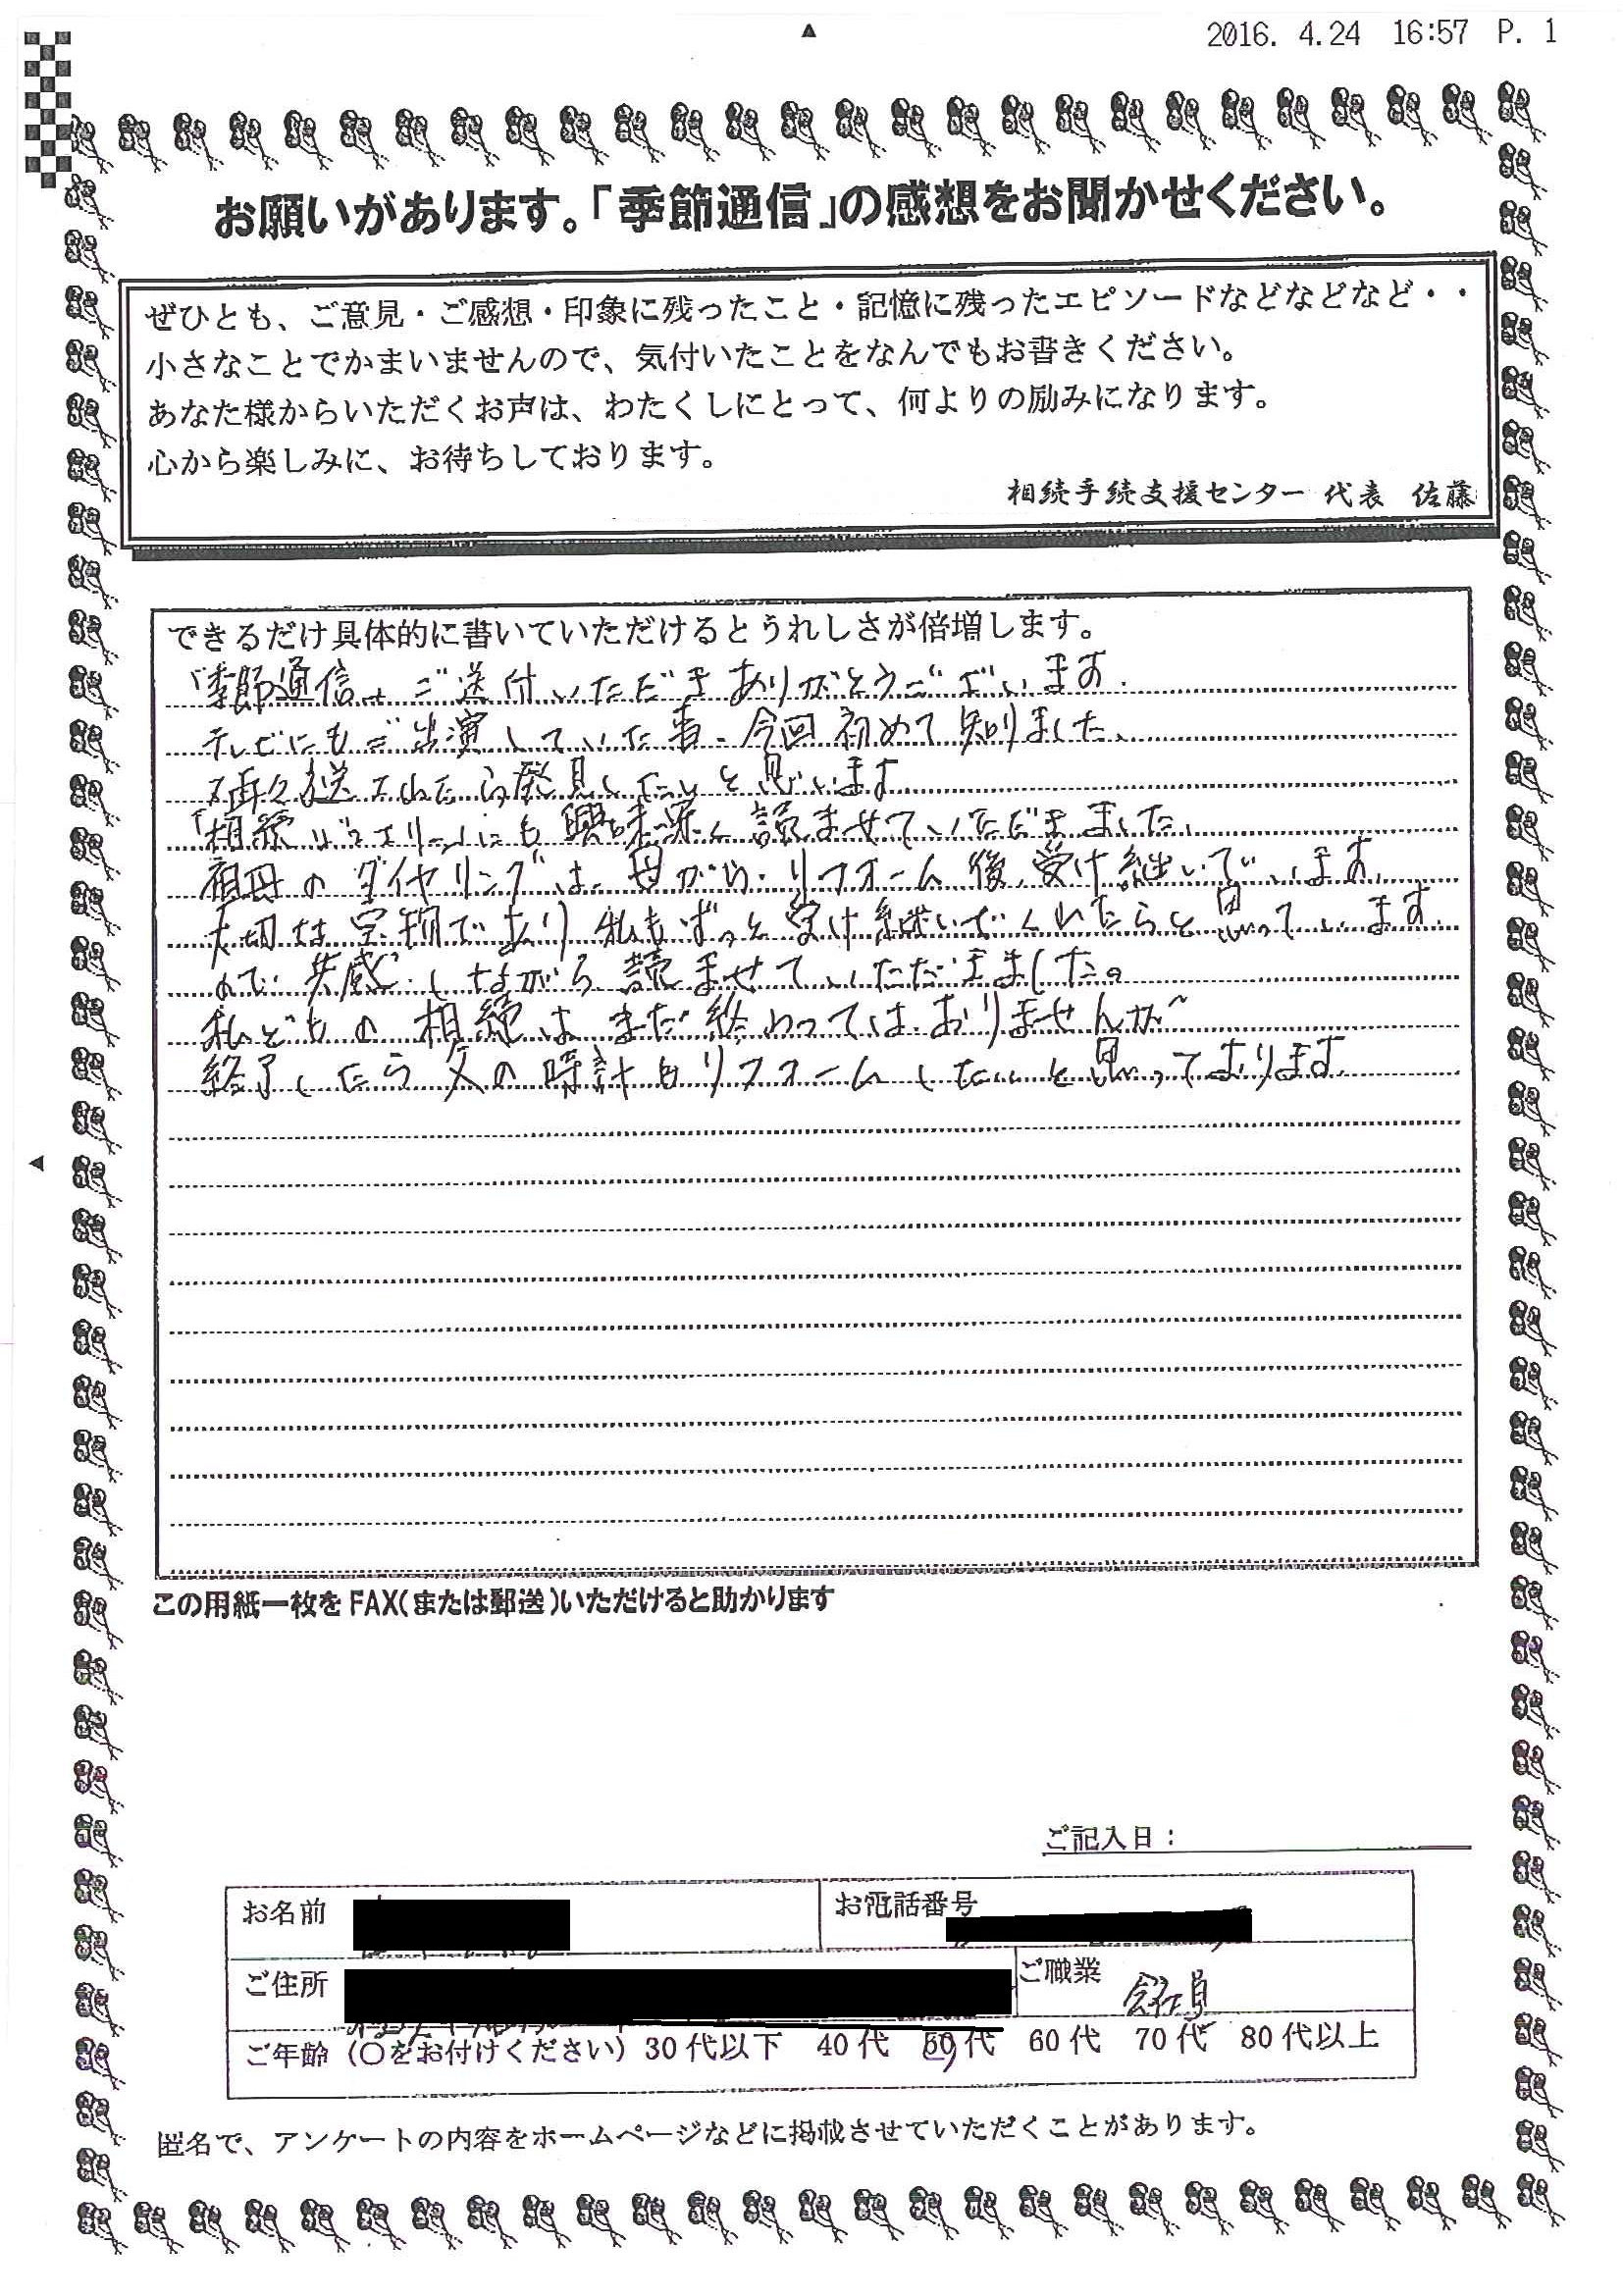 2016. 4.24 16:57 P. 1
お願いがあります。「季節通信」の感想をお聞かせください。
ぜひとも、ご意見・ご感想・印象に残ったこと・記憶に残ったエピソードなどなどなど・・
小さなことでかまいませんので、気付いたことをなんでもお書きください。
あなた様からいただくお声は、わたくしにとって、何よりの励みになります。
心から楽しみに、お待ちしております。
相続手続支援センター 代表 佐藤
できるだけ具体的に書いていただけるとうれしさが倍増します。
「季節通信」ご送付いただきありがとうございます.
テレビにもご出演していた事、今回初めて知りました、
再々送されたら発見したいと思います
「相続ジュエリー」にも興味深く読ませていただきました、
祖母のダイヤリングは、母から、リフォーム後、受け継いでいます、
大切な宝物であり私もずっと受け継いでくれたらと思っています、
ので共感しながら読ませていただきました。
私どもの相続はまだ終わってはおりませんが
終了したら父の時計もリフォームしたいと思っております、
この用紙一枚をFAX(または郵送)いただけると助かります
ご記入日：
お名前
お電話番号
ご住所
ご職業 会社員
ご年齢（〇をお付けください）30代以下 40代 50代 60代 70代 80代以上
匿名で、アンケートの内容をホームページなどに掲載させていただくことがあります。